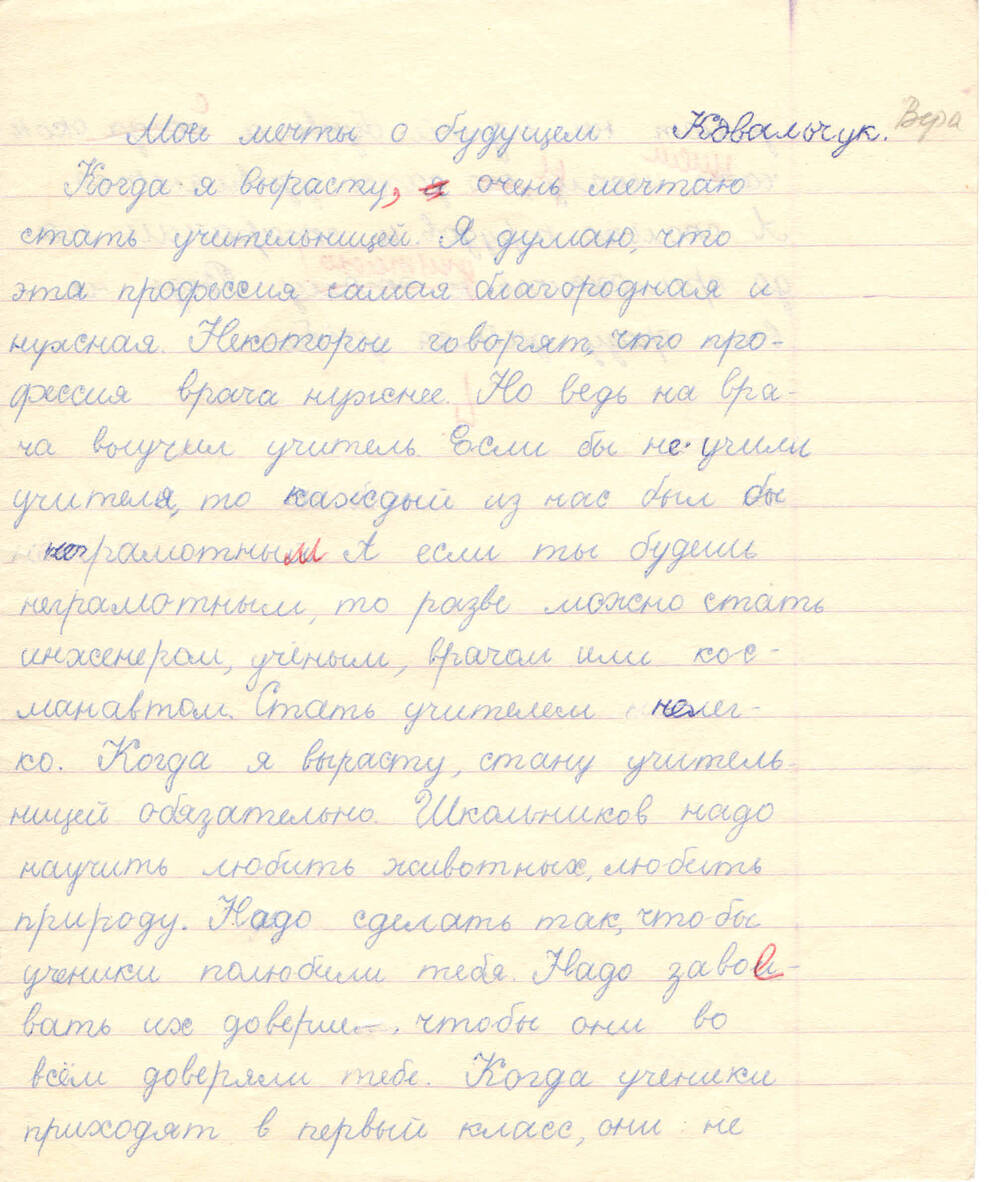 Мои мечты о будущем Ковальчук. Вера
Когда я вырасту, я очень мечтаю
стать учительницей. Я думаю, что
эта профессия самая благородная и
нужная. Некоторые говорят, что про-
фессия врача нужнее. Но ведь на вра-
ча выучил учитель. Если бы не учили
учителя, то каждый из нас был бы
неграмотным А если ты будешь
неграмотным, то разве можно стать
инженером, учёным, врачом или кос-
манавтом. Стать учителем нелег-
ко. Когда я вырасту, стану учитель-
ницей обязательно. Школьников надо
научить любить животных, любить
природу. Надо сделать так, что бы
ученики полюбили тебя. Надо завое-
вать их доверие, чтобы они во
всём доверяли тебе. Когда ученики
приходят в первый класс, они не